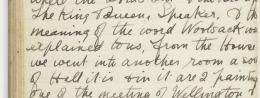 The King & Queen, Speaker, & the
meaning of the word Woolsack was
explained to us, from the House
we went into another room a sort
of Hall it is & in it are 2 painting
one of the meeting of Wellington &